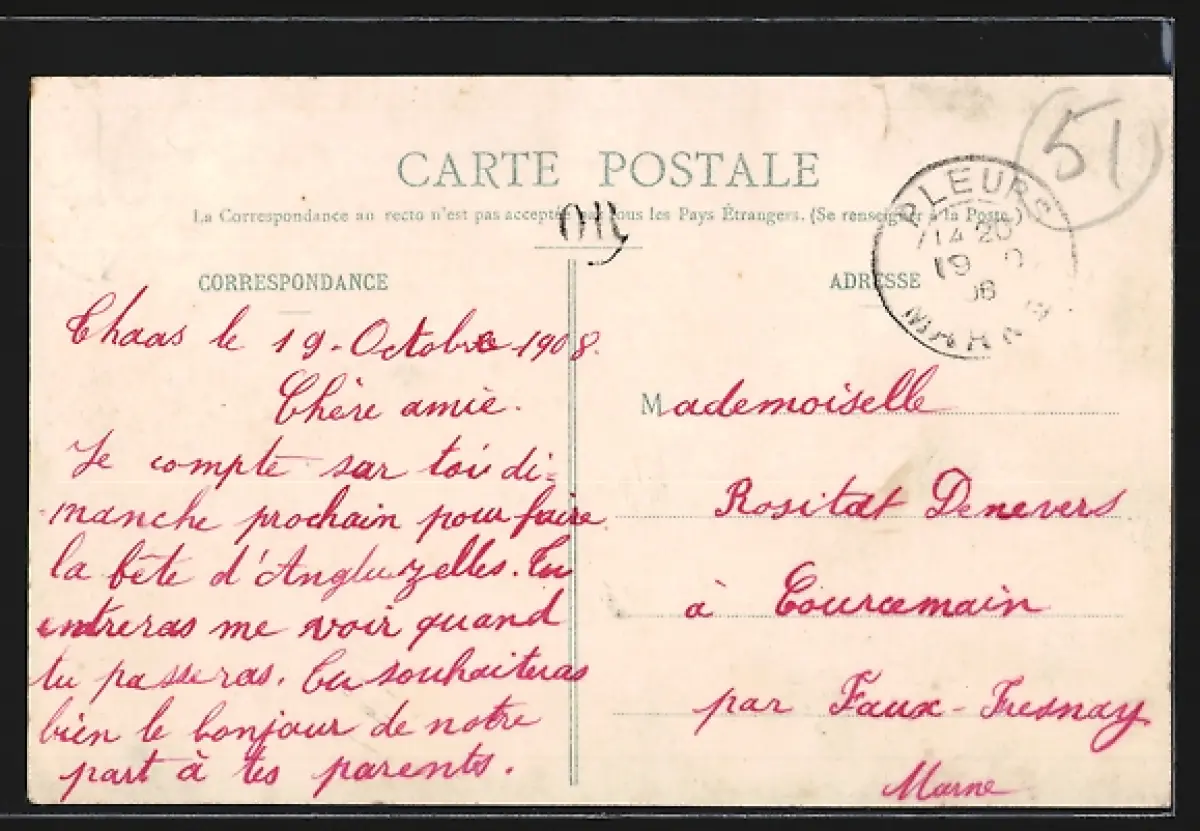 CARTE POSTALE
La Correspondance au recto n'est pas acceptée par tous les Pays Étrangers. (Se renseigner à la Poste.)
51
PLEURS
14 20
19
MARNE
CORRESPONDANCE
ADRESSE
Chaas le 19 - Octobre 1908.
Chère amie.
Je compte sur toi di=
manche prochain pour faire
la bête d'Angluzelles. Tu
entreras me voir quand
tu passeras. Tu souhaiteras
bien le bonjour de notre
part à tes parents.
Mademoiselle
Rositat Denevers
à Courcemain
par Faux-Fresnay
Marne